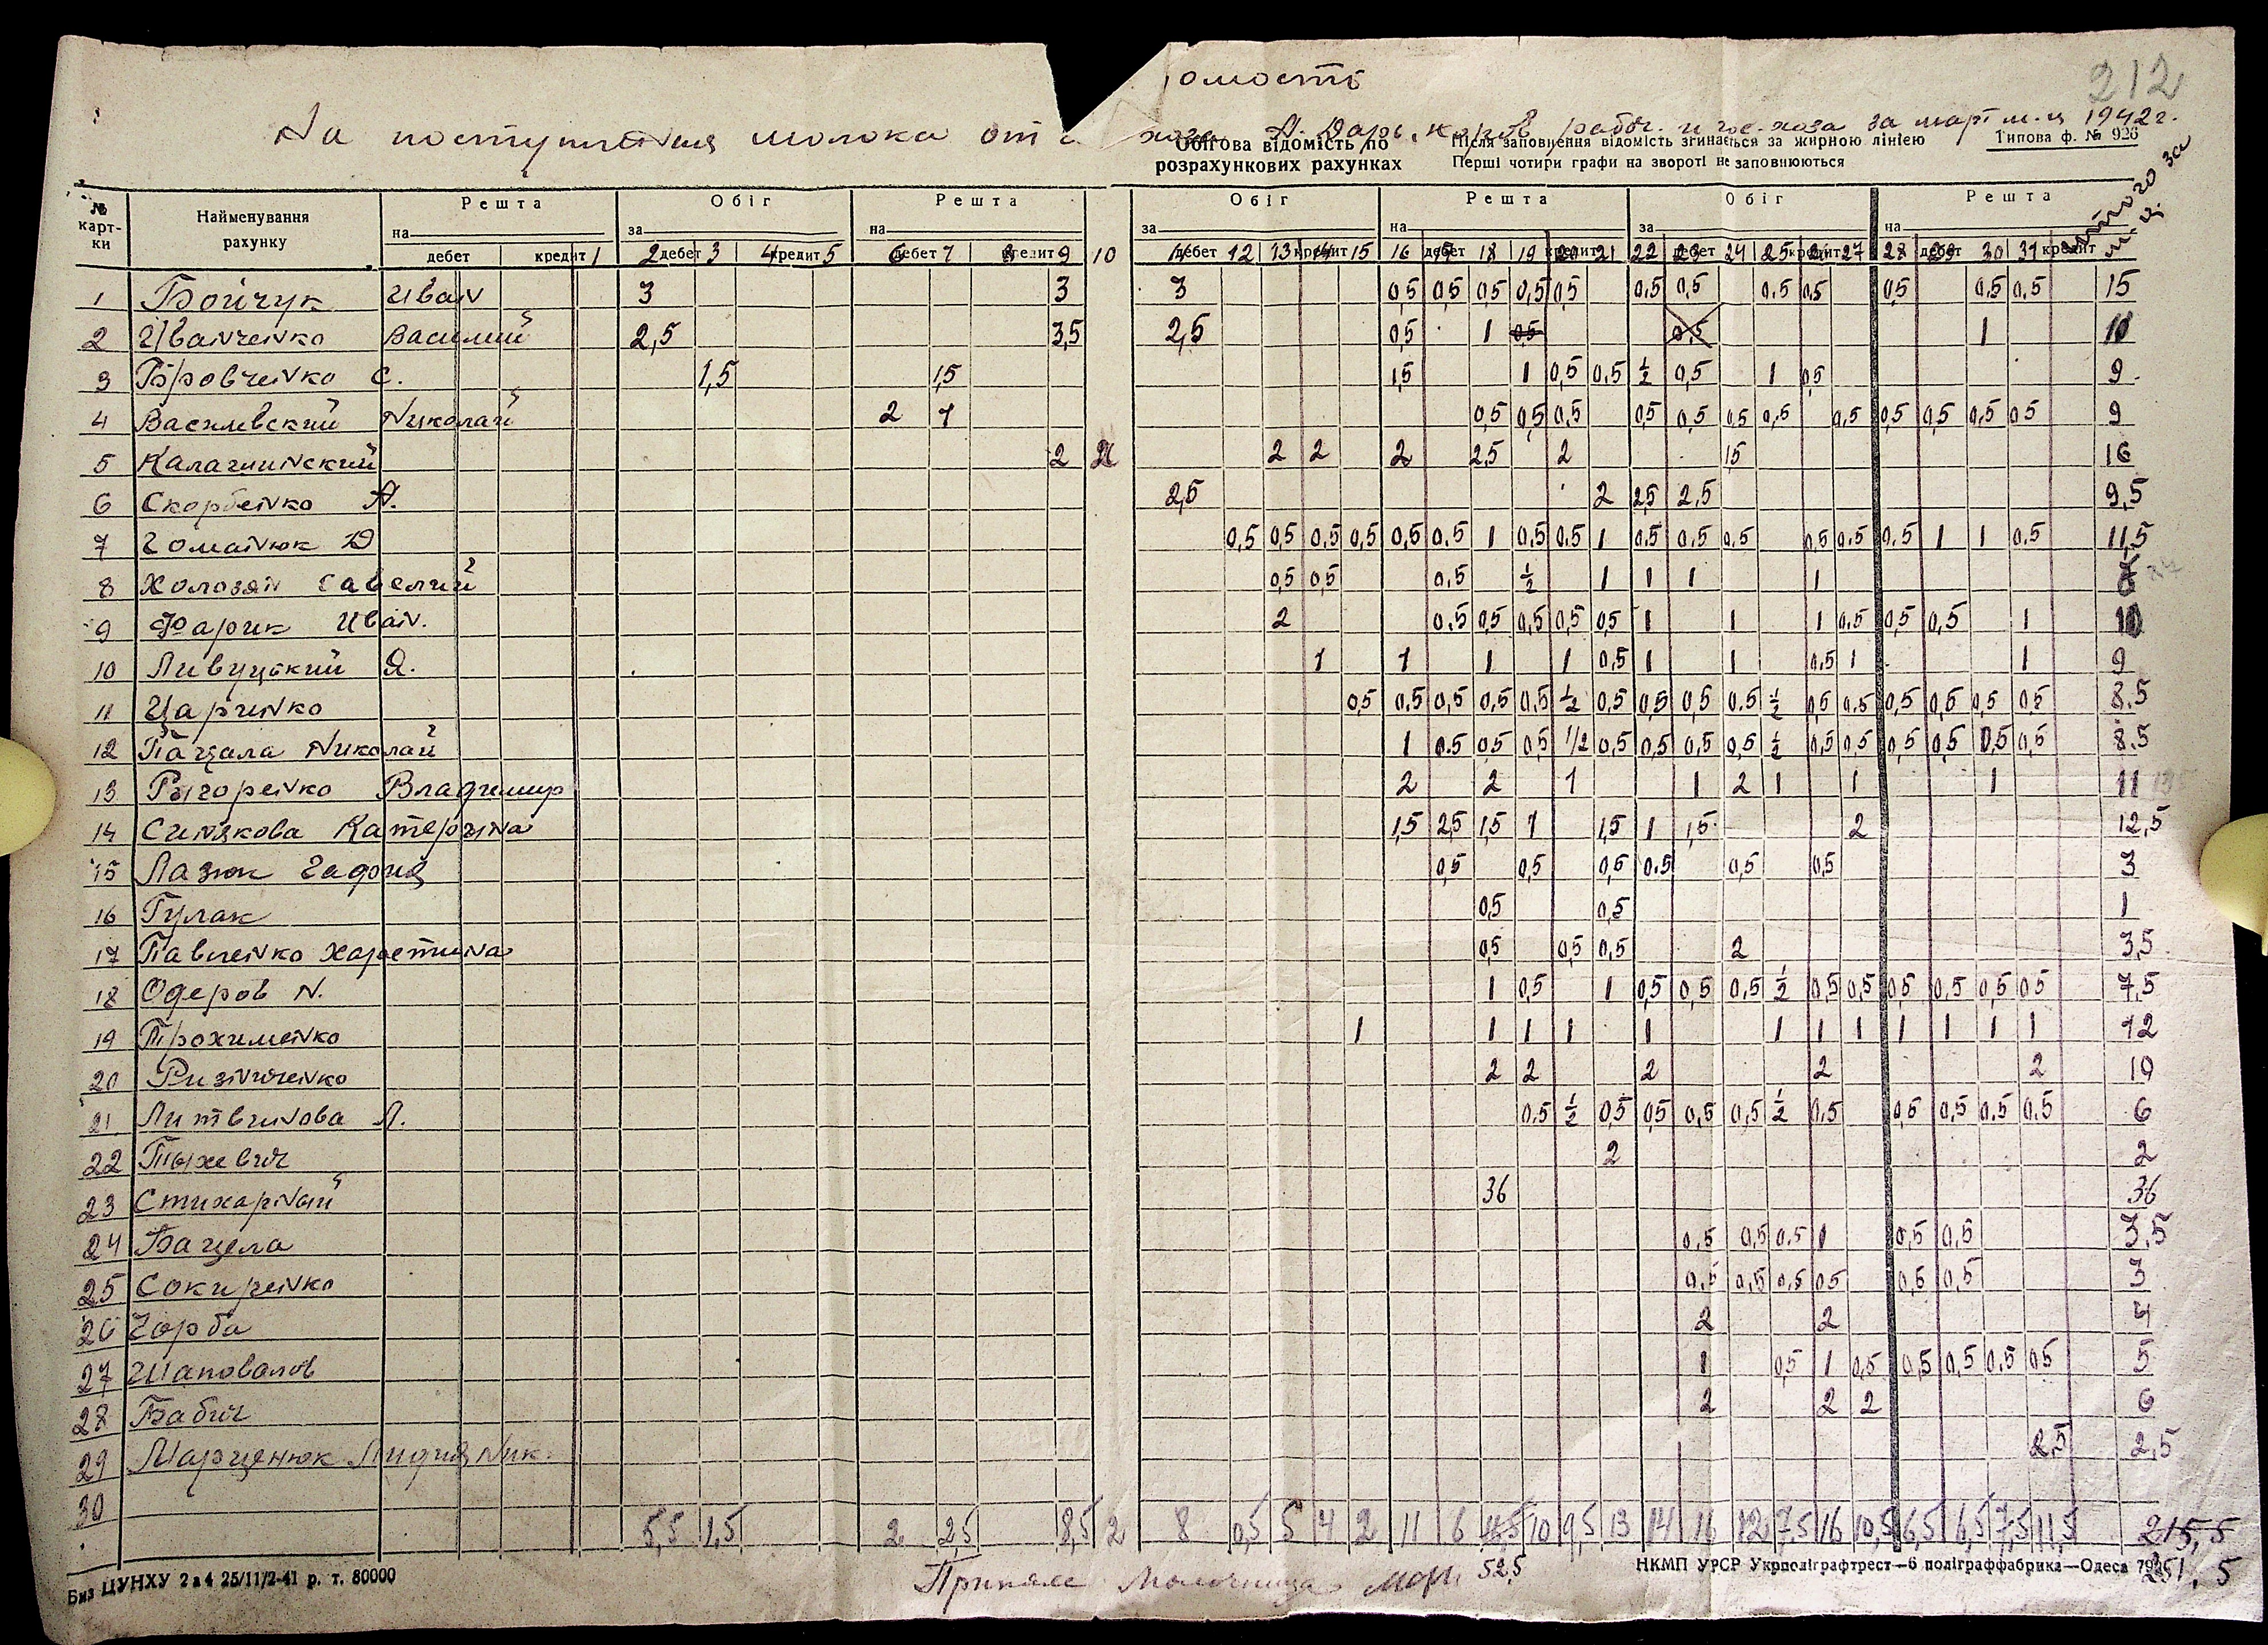 омость
212
На поступления молока от хоза Н. Дарь. коров рабоч. и гос-хоза за март м-ц 1942 г.
Обігова відомість по розрахункових рахунках
Після заповнення відомість згинається за жирною лінією
Перші чотири графи на звороті не заповнюються
Типова ф. № 926
№ картки Найменування рахунку Решта Обіг Решта Обіг Решта Обіг Решта итого за м-ц
на за на за на за на
дебет кредит дебет кредит дебет кредит дебет кредит дебет кредит дебет кредит дебет кредит
1 2 3 4 5 6 7 8 9 10 11 12 13 14 15 16 17 18 19 20 21 22 23 24 25 26 27 28 29 30 31
1 Бойчук Иван 3 3 3 0,5 0,5 0,5 0,5 0,5 0,5 0,5 0,5 0,5 0,5 0,5 0,5 15
2 Иванченко Василий 2,5 3,5 2,5 0,5 1 0,5 0,5 1 10
3 Бровченко С. 1,5 1,5 1,5 1 0,5 0,5 ½ 0,5 1 0,5 9
4 Василевский Николай 2 1 0,5 0,5 0,5 0,5 0,5 0,5 0,5 0,5 0,5 0,5 0,5 0,5 9
5 Калашинский 2 2 2 2 2 2,5 2 1,5 16
6 Скорбенко А. 2,5 2 2,5 2,5 9,5
7 Гоманюк Д 0,5 0,5 0,5 0,5 0,5 0,5 1 0,5 0,5 1 0,5 0,5 0,5 0,5 0,5 0,5 1 1 0,5 11,5
8 Холозян Савелий 0,5 0,5 0,5 ½ 1 1 1 1
9 Фарик Иван. 2 0,5 0,5 0,5 0,5 0,5 1 1 1 0,5 0,5 0,5 1 10
10 Ливуцький Я. 1 1 1 1 0,5 1 1 0,5 1 1 9
11 Царинко 0,5 0,5 0,5 0,5 0,5 ½ 0,5 0,5 0,5 0,5 ½ 0,5 0,5 0,5 0,5 0,5 0,5 8.5
12 Пацала Николай 1 0.5 0,5 0,5 1/2 0,5 0,5 0,5 0,5 ½ 0,5 0,5 0,5 0,5 0,5 0,5 8.5
13 Рыгоренко Владимир 2 2 1 1 2 1 1 1 11
14 Синякова Катерина 1,5 2,5 1,5 1 1,5 1 1,5 2 12,5
15 Лазюк Гафия 0,5 0,5 0,5 0.5 0,5 0,5 3
16 Гулак 0,5 0,5 1
17 Павленко Харетина 0,5 0,5 0,5 2 3,5
18 Одеров Н. 1 0,5 1 0,5 0,5 0,5 ½ 0,5 0,5 0,5 0,5 0,5 0,5 7,5
19 Трохименко 1 1 1 1 1 1 1 1 1 1 1 1 12
20 Ризниченко 2 2 2 2 2 10
21 Литвинова Л. 0.5 ½ 0,5 0,5 0,5 0,5 ½ 0,5 0,5 0,5 0.5 0.5 6
22 Пыхевич 2 2
23 Стихарный 36 36
24 Бацела 0,5 0,5 0.5 1 0,5 0,5 3,5
25 Сокиренко 0,5 0,5 0,5 0,5 0,5 0,5 3
26 Горба 2 2 4
27 Шаповалов 1 0,5 1 0,5 0,5 0,5 0,5 0,5 5
28 Бабич 2 2 2 6
29 Марценюк Лидия Ник. 2,5 2,5
30
5,5 1,5 2 2,5 8,5 2 8 0,5 5 4 2 11 6 10 9,5 13 14 16 12 7,5 16 10,5 6,5 6,5 7,5 11,5 215,5
Биз ЦУНХУ 2 a 4 25/11/2-41 р. т. 80000
Приняла молочница
52,5
НКМП УРСР Укрполіграфтрест—6 поліграффабрика—Одеса
251,5